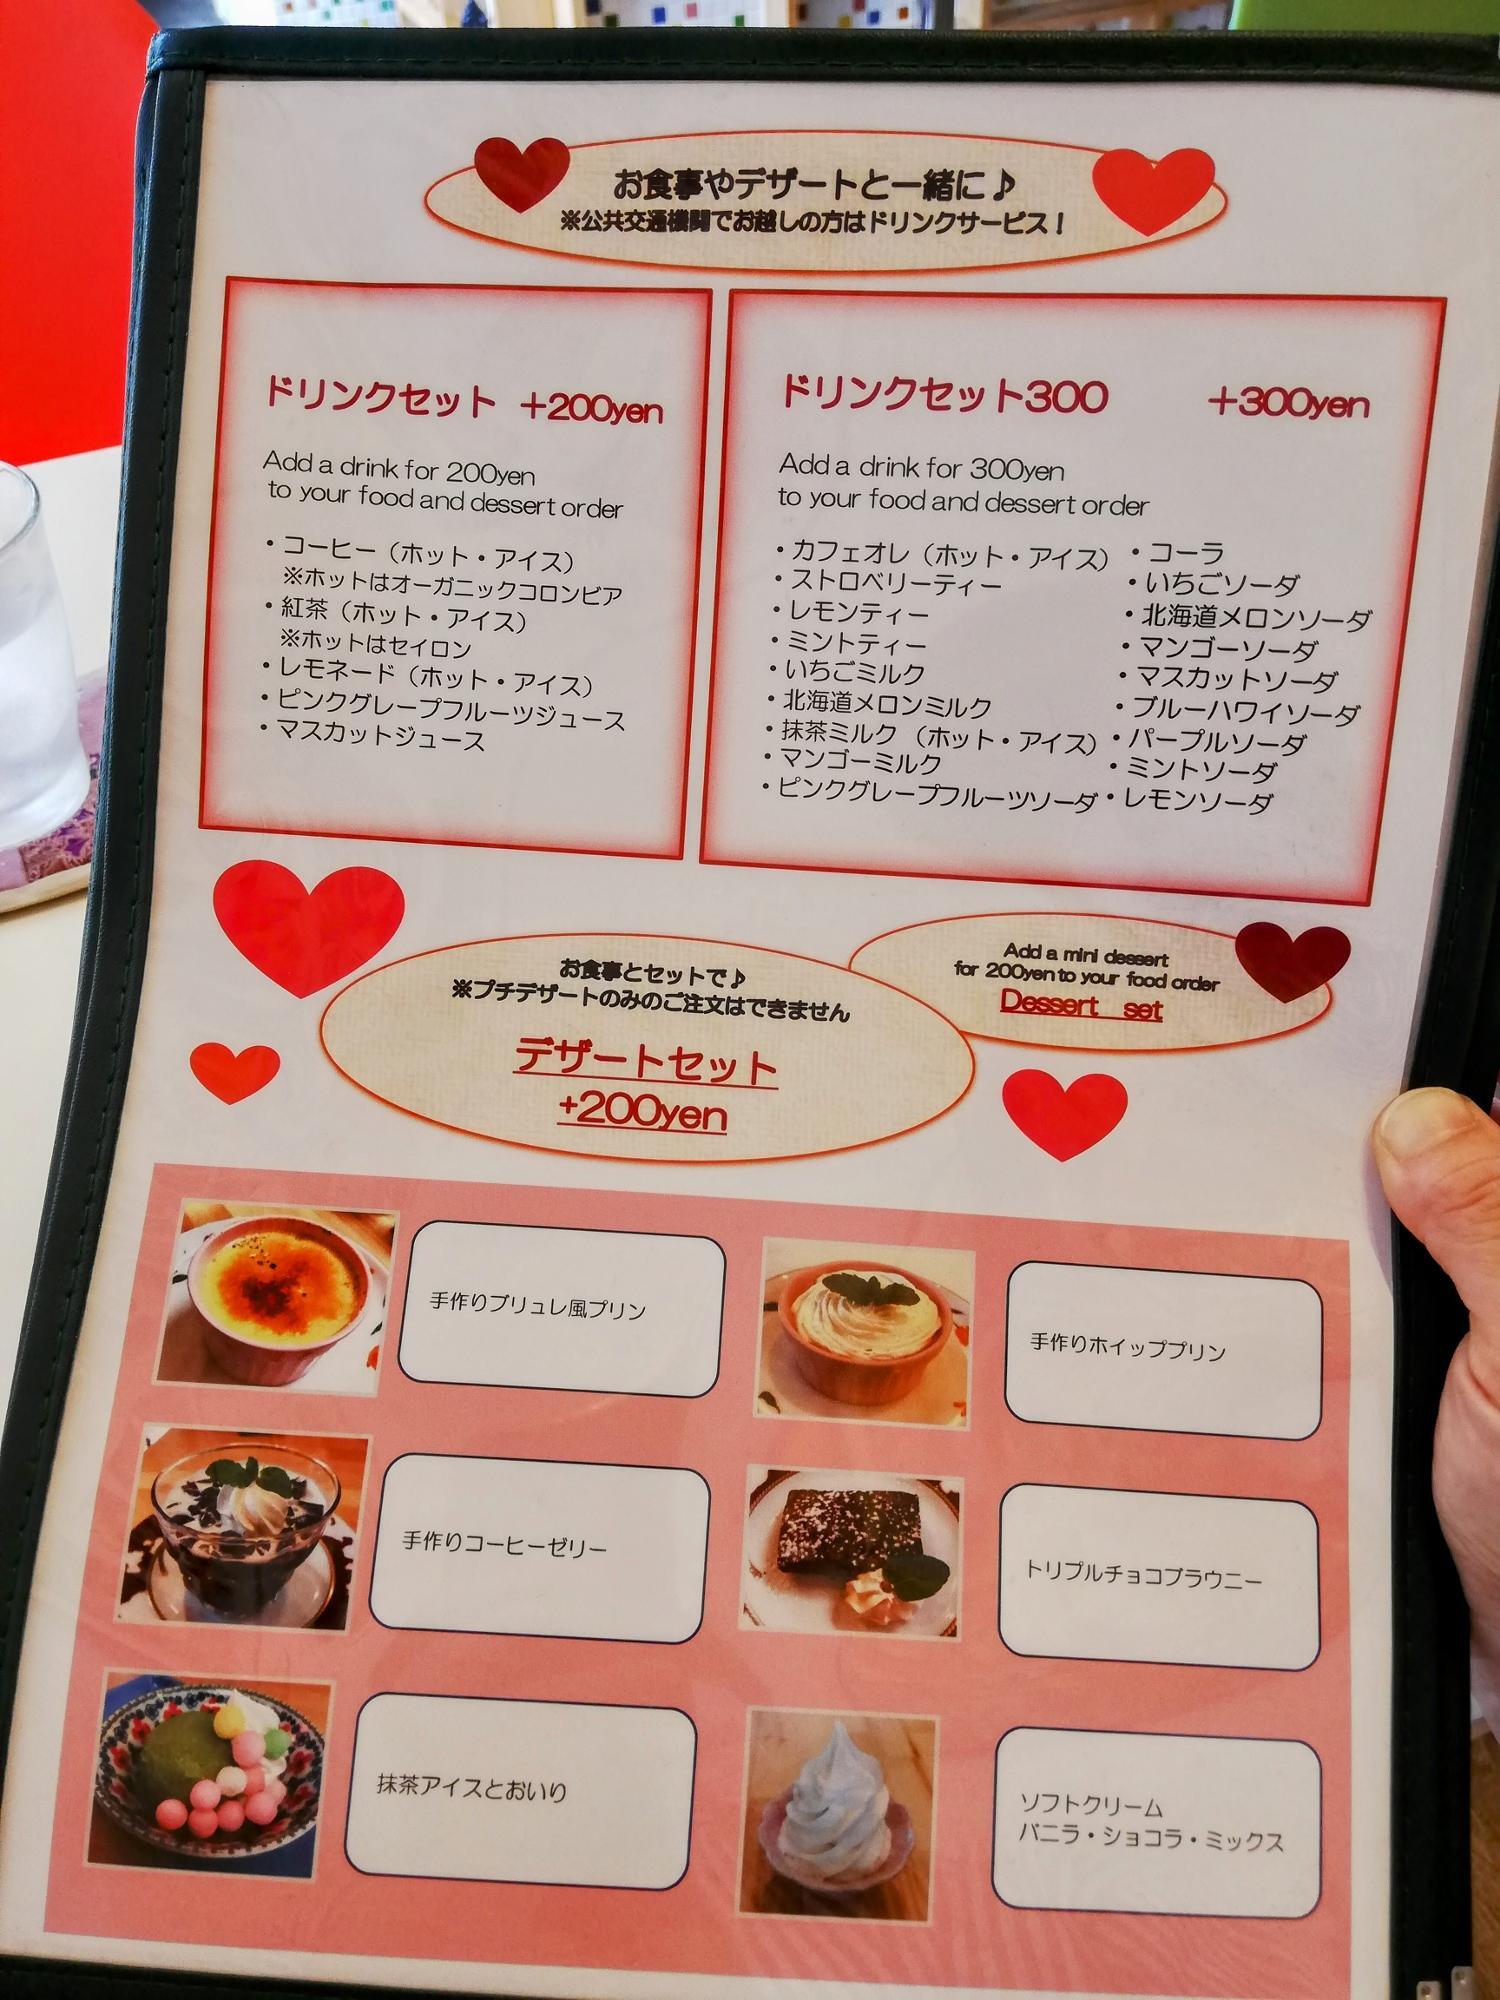 お食事やデザートと一緒に♪
※公共交通機関でお越しの方はドリンクサービス！
ドリンクセット +200yen
Add a drink for 200yen
to your food and dessert order
・コーヒー（ホット・アイス）
※ホットはオーガニックコロンビア
・紅茶（ホット・アイス）
※ホットはセイロン
・レモネード（ホット・アイス）
・ピンクグレープフルーツジュース
・マスカットジュース
ドリンクセット300 +300yen
Add a drink for 300yen
to your food and dessert order
・カフェオレ（ホット・アイス）
・ストロベリーティー
・レモンティー
・ミントティー
・いちごミルク
・北海道メロンミルク
・抹茶ミルク（ホット・アイス）
・マンゴーミルク
・ピンクグレープフルーツソーダ
・コーラ
・いちごソーダ
・北海道メロンソーダ
・マンゴーソーダ
・マスカットソーダ
・ブルーハワイソーダ
・パープルソーダ
・ミントソーダ
・レモンソーダ
お食事とセットで♪
※プチデザートのみのご注文はできません
デザートセット
+200yen
Add a mini dessert
for 200yen to your food order
Dessert set
手作りブリュレ風プリン
手作りホイッププリン
手作りコーヒーゼリー
トリプルチョコブラウニー
抹茶アイスとおいり
ソフトクリーム
バニラ・ショコラ・ミックス